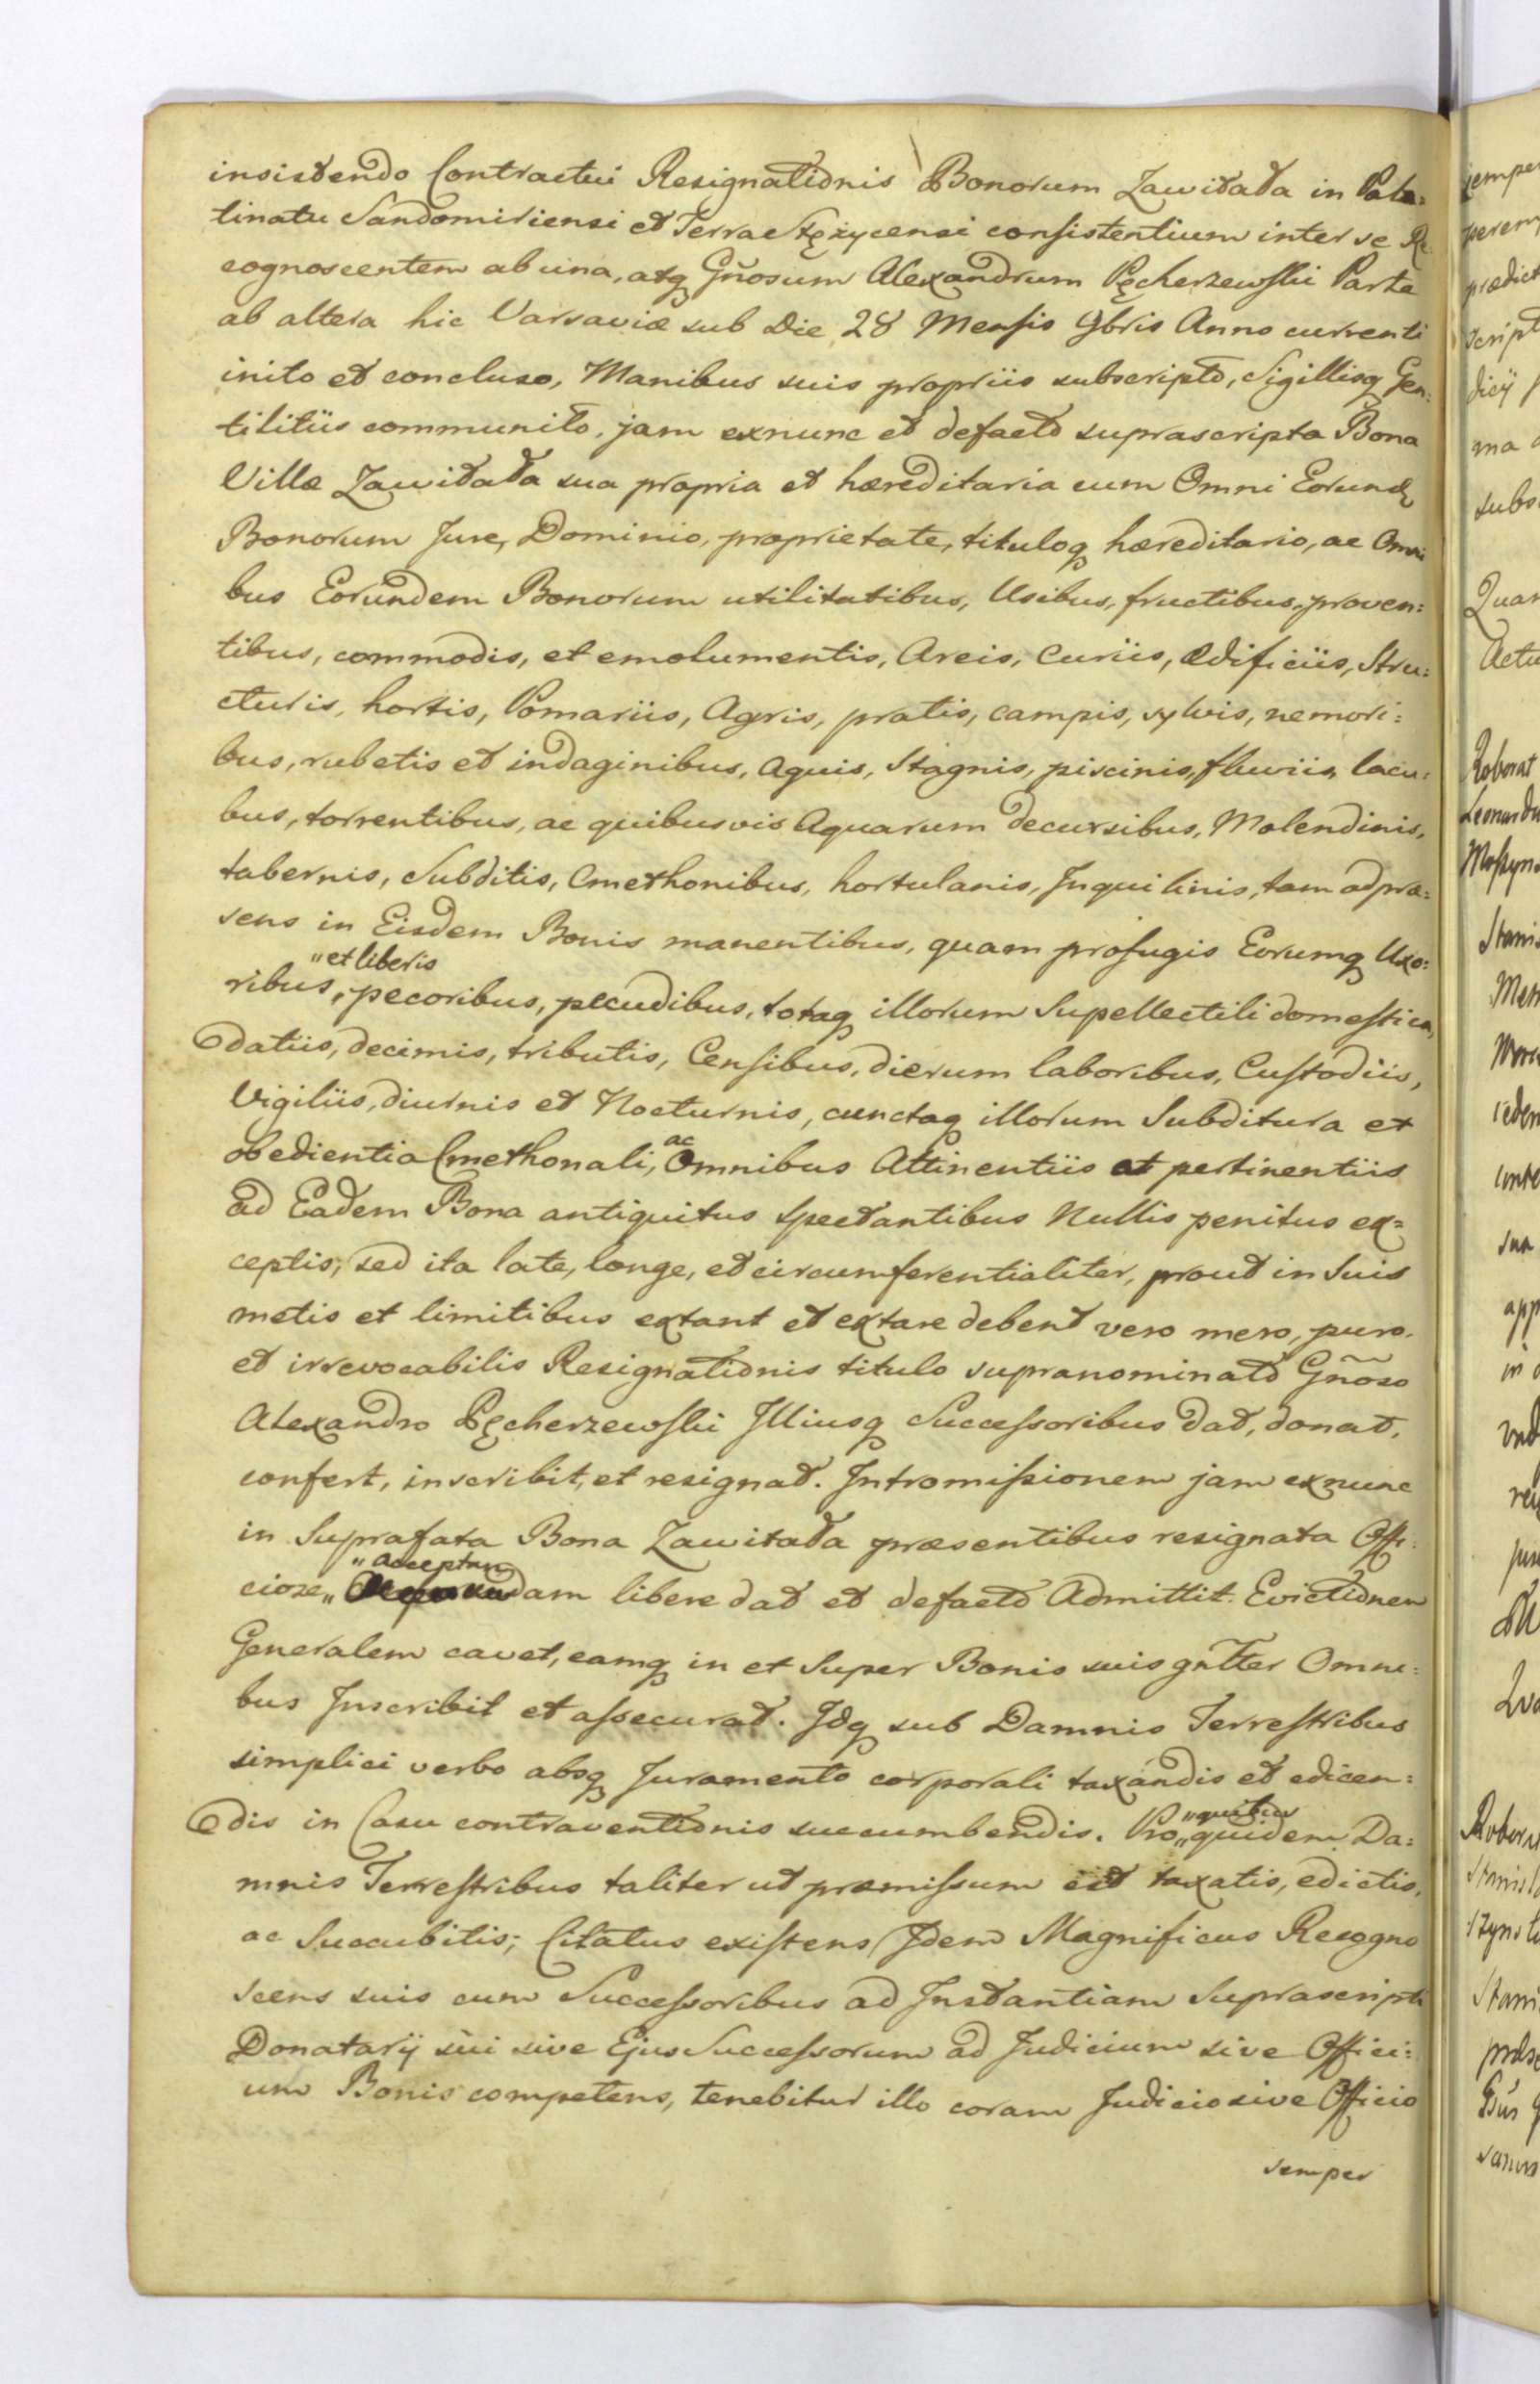 insistendo Contractui Resignationis Bonorum Zawitata in Pala:
tinatu Sandomiriensi et Terra Stężycensi consistentium inter se Re
cognoscentem ab una, atq Gñosum Alexandrum Pęcherzewski Parte
ab altera hic Varsaviæ sub Die 28 Mensis 9bris Anno currenti
inito et concluso, Manibus suis propriis subscripto, Sigillisq Gen:
tilitiis communito, jam exnunc et defacto suprascripta Bona
Villæ Zawitata sua propria et hæreditaria cum Omni Eorund
Bonorum Jure, Dominio, proprietate, tituloq hæreditario, ac Omni
bus Eorundem Bonorum utilitatibus, Usibus, fructibus, proven:
tibus, commodis, et emolumentis, Areis, Curiis, Ædificiis, Stru:
cturis, hortis, Pomariis, Agris, pratis, campis, sylvis, nemori:
bus, rubetis et indaginibus, Aquis, Stagnis, piscinis, fluviis, lacu:
bus, torrentibus, ac quibusvis Aquarum decursibus, Molendinis,
tabernis, Subditis, Cmethonibus, hortulanis, Inquilinis, tam ad præ:
sens in Eisdem Bonis manentibus, quam profugis Eorumq Uxo:
"et liberis
ribus, pecoribus, pecudibus, totaq illorum Supellectili domestica,
datiis, decimis, tributis, Censibus, dierum laboribus, Custodiis,
Vigiliis, diurnis et Nocturnis, cunctaq illorum Subditura et
obedientia Cmethonali, ac Omnibus Attinentiis et pertinentiis
ad Eadem Bona antiquitus spectantibus Nullis penitus ex=
ceptis, sed ita late, longe, et circumferentialiter, prout in Suis
metis et limitibus extant et extare debent vero mero, puro,
et irrevocabilis Resignationis titulo supranominato Gñoso
Alexandro Pęcherzewski Illiusq Successoribus dat, donat,
confert, inscribit, et resignat. Intromissionem jam exnunc
in Suprafata Bona Zawitata præsentibus resignata Offi:
"acceptan
ciose,, dam libere dat et defacto Admittit. Evictionem
Generalem cavet, eamq in et Super Bonis suis gñtter Omni:
bus Inscribit et assecurat. Idq sub Damnis Terrestribus
simplici verbo absq Juramento corporali taxandis et edicen:
dis in Casu contraventionis succumbendis. Pro,, "quibus quidem Da:
mnis Terrestribus taliter ut præmissum est taxatis, edictis,
ac Succubitis; Citatus existens Idem Magnificus Recogno
scens suis cum Successoribus ad Instantiam Suprascripti
Donatarij sui sive Ejus Successorum ad Judicium sive Offici:
um Bonis competens, tenebitur illo coram Judicio sive Officio
semper